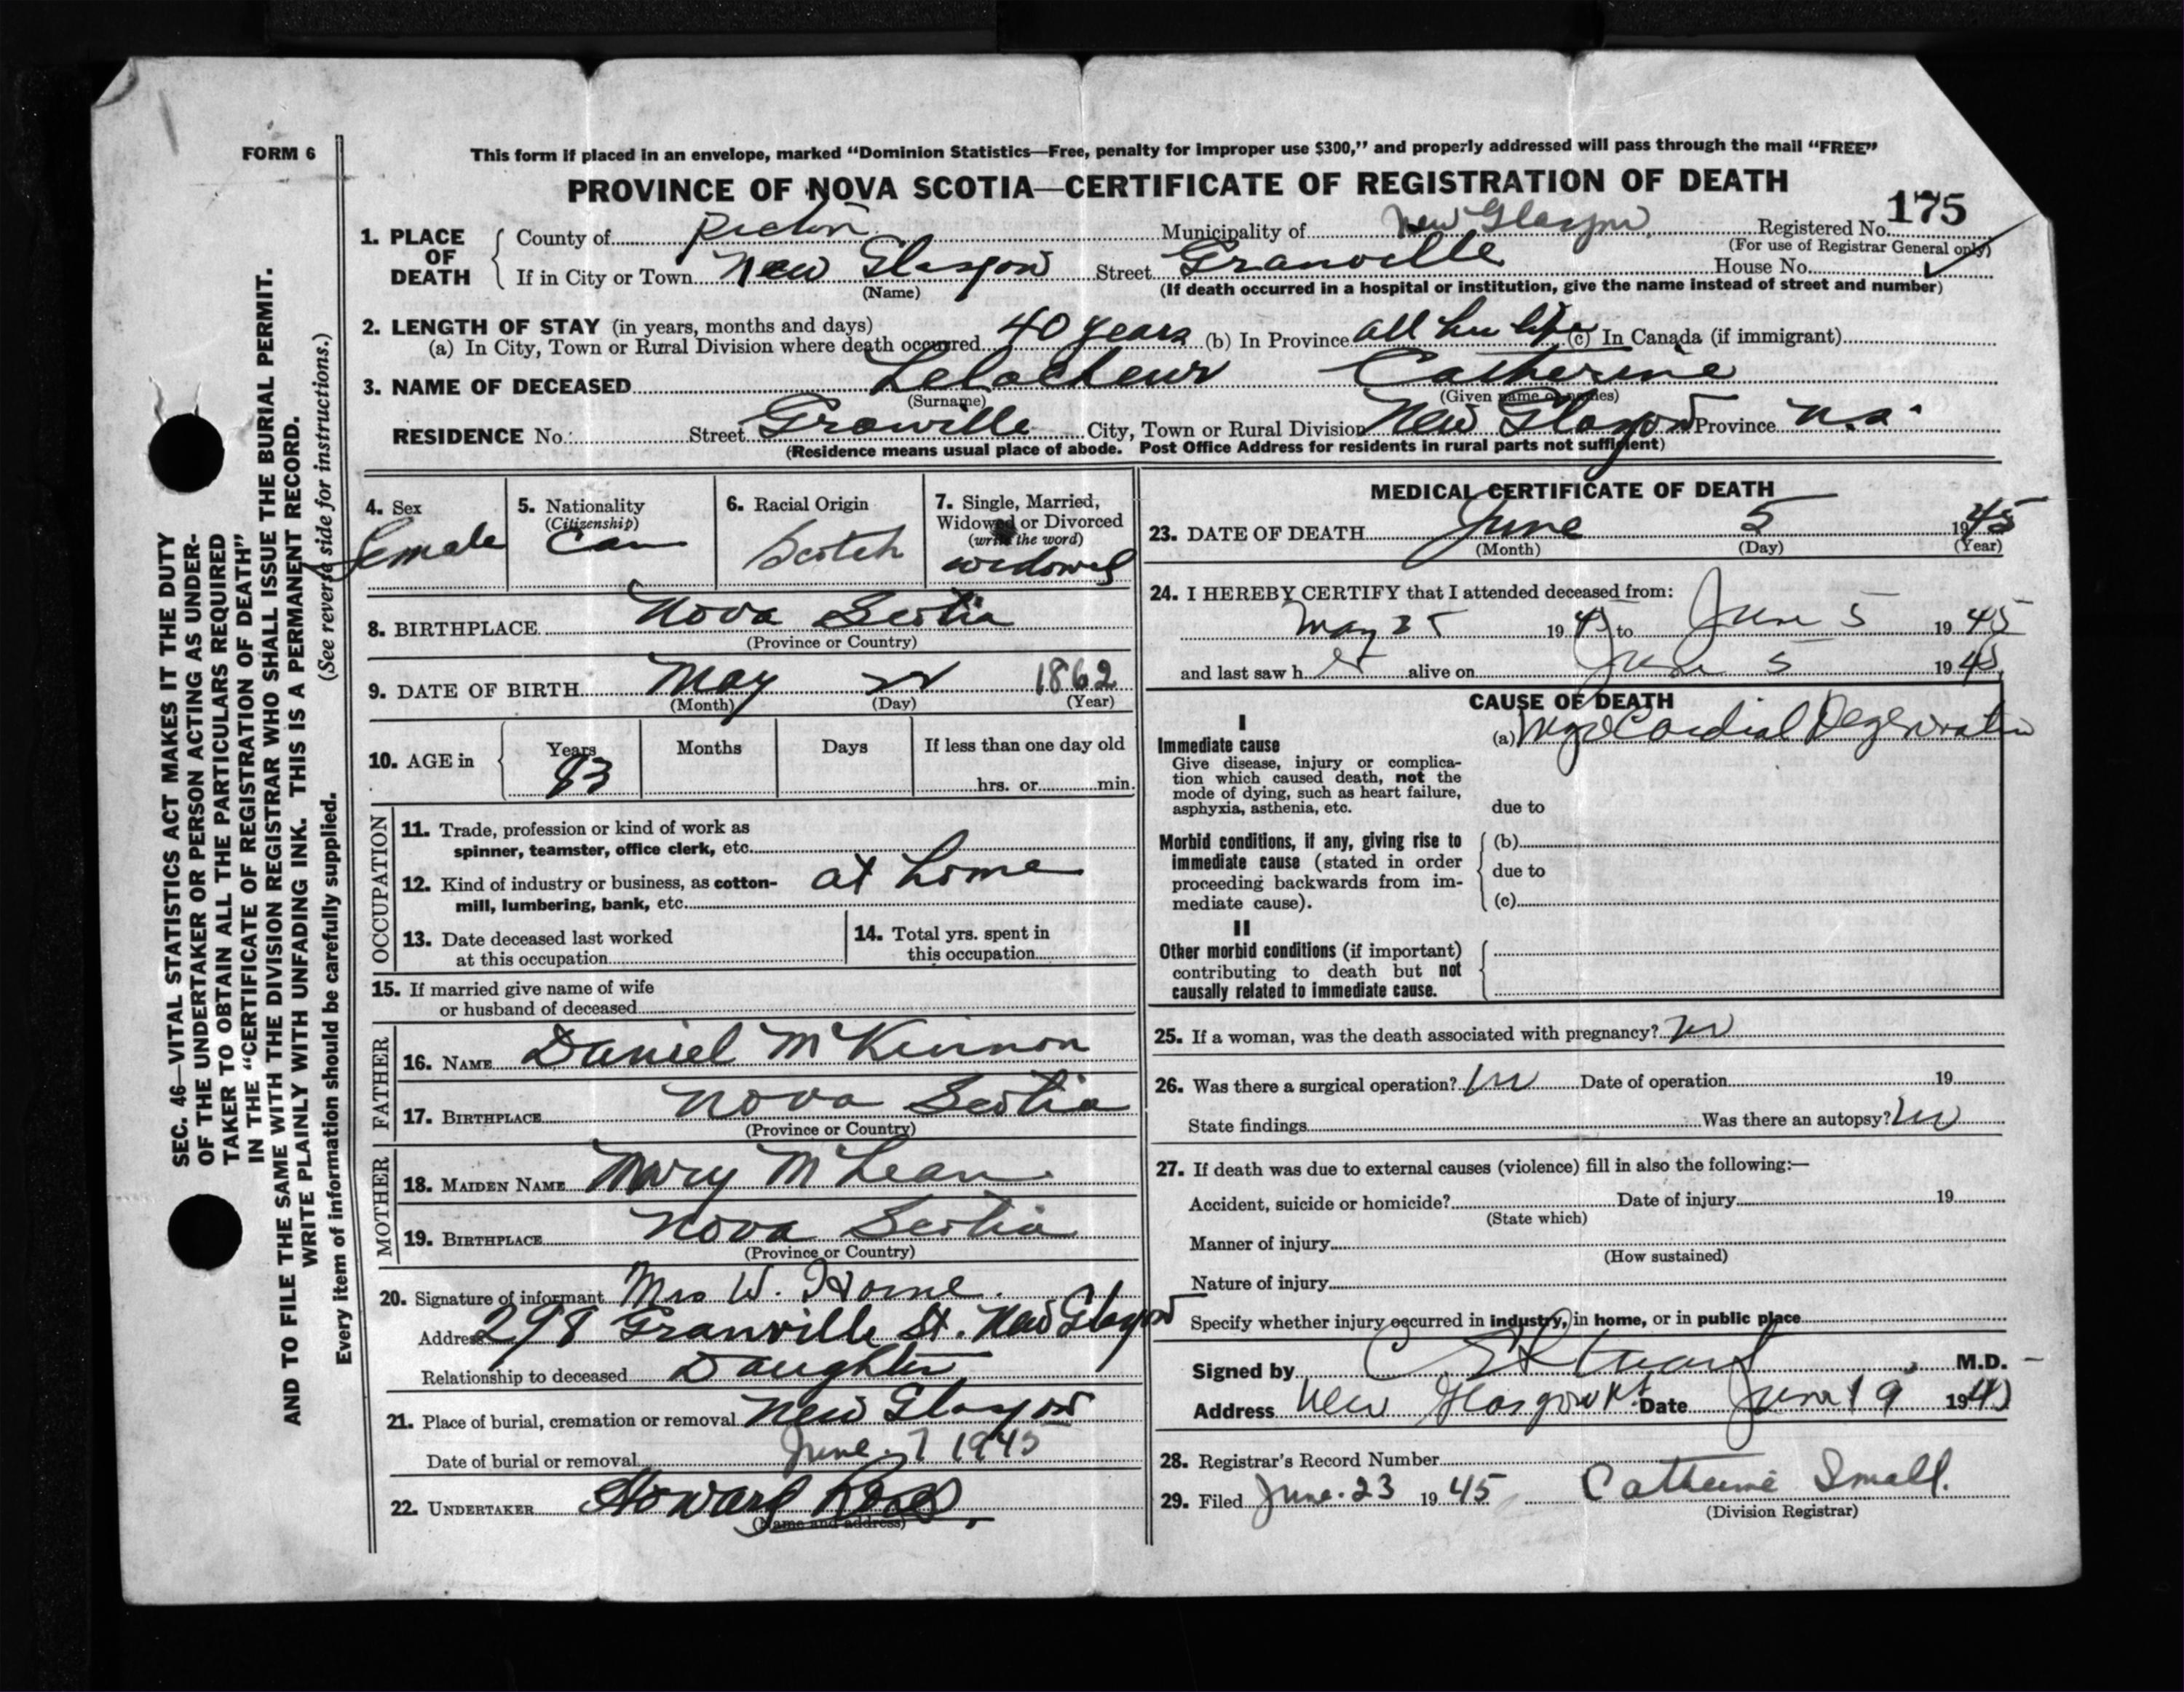 FORM 6
This form if placed in an envelope, marked “Dominion Statistics—Free, penalty for improper use $300,” and properly addressed will pass through the mail “FREE”
PROVINCE OF NOVA SCOTIA—CERTIFICATE OF REGISTRATION OF DEATH
175
1. PLACE OF DEATH
County of Pictou Municipality of New Glasgow Registered No.
(For use of Registrar General only)
If in City or Town New Glasgow Street Granville House No.
(Name)
(If death occurred in a hospital or institution, give the name instead of street and number)
2. LENGTH OF STAY (in years, months and days)
(a) In City, Town or Rural Division where death occurred 40 years (b) In Province all her life (c) In Canada (if immigrant)
3. NAME OF DECEASED LeLacheur Catherine
(Surname) (Given name or names)
RESIDENCE No. Street Granville City, Town or Rural Division New Glasgow Province N.S.
(Residence means usual place of abode. Post Office Address for residents in rural parts not sufficient)
4. Sex
Female
5. Nationality
(Citizenship)
Can
6. Racial Origin
Scotch
7. Single, Married,
Widowed or Divorced
(write the word)
widowed
8. BIRTHPLACE Nova Scotia
(Province or Country)
9. DATE OF BIRTH May 22 1862
(Month) (Day) (Year)
10. AGE in
Years Months Days If less than one day old
83 hrs. or min.
OCCUPATION
11. Trade, profession or kind of work as
spinner, teamster, office clerk, etc.
12. Kind of industry or business, as cotton-
mill, lumbering, bank, etc. at home
13. Date deceased last worked
at this occupation
14. Total yrs. spent in
this occupation
15. If married give name of wife
or husband of deceased
FATHER
16. NAME Daniel McKinnon
17. BIRTHPLACE Nova Scotia
(Province or Country)
MOTHER
18. MAIDEN NAME Mary McLean
19. BIRTHPLACE Nova Scotia
(Province or Country)
20. Signature of informant Mrs W. Horne.
Address 298 Granville St. New Glasgow
Relationship to deceased Daughter
21. Place of burial, cremation or removal New Glasgow
Date of burial or removal June 7 1945
22. UNDERTAKER Howard Ross,
(Name and address)
MEDICAL CERTIFICATE OF DEATH
23. DATE OF DEATH June 5 1945
(Month) (Day) (Year)
24. I HEREBY CERTIFY that I attended deceased from:
May 1945 to June 5 1945
and last saw her alive on June 5 1945
CAUSE OF DEATH
I
Immediate cause
Give disease, injury or complica-
tion which caused death, not the
mode of dying, such as heart failure,
asphyxia, asthenia, etc.
(a) Myocardial Degeneration
due to
Morbid conditions, if any, giving rise to
immediate cause (stated in order
proceeding backwards from im-
mediate cause).
(b)
due to
(c)
II
Other morbid conditions (if important)
contributing to death but not
causally related to immediate cause.
25. If a woman, was the death associated with pregnancy? no
26. Was there a surgical operation? no Date of operation 19
State findings Was there an autopsy? no
27. If death was due to external causes (violence) fill in also the following:—
Accident, suicide or homicide? Date of injury 19
(State which)
Manner of injury
(How sustained)
Nature of injury
Specify whether injury occurred in industry, in home, or in public place
Signed by C Stuart M.D.
Address New Glasgow Date June 19 1945
28. Registrar's Record Number
29. Filed June 23 1945 Catherine Small.
(Division Registrar)
SEC. 46—VITAL STATISTICS ACT MAKES IT THE DUTY
OF THE UNDERTAKER OR PERSON ACTING AS UNDER-
TAKER TO OBTAIN ALL THE PARTICULARS REQUIRED
IN THE “CERTIFICATE OF REGISTRATION OF DEATH”
AND TO FILE THE SAME WITH THE DIVISION REGISTRAR WHO SHALL ISSUE THE BURIAL PERMIT.
WRITE PLAINLY WITH UNFADING INK. THIS IS A PERMANENT RECORD.
Every item of information should be carefully supplied. (See reverse side for instructions.)